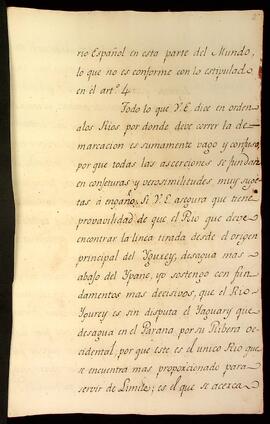 rio Español en esta parte del Mundo,
lo que no es conforme con lo estipulado
en el art.º 4.
Todo lo que V.E. dice en orden
a los Rios por donde deve correr la de-
marcacion es sumamente vago y confuso,
por que todas las aserciones se fundan
en conjeturas y verosimilitudes, muy suge-
tas à engaño. Si V.E. asegura que tiene
provavilidad de que el Rio que deve
encontrar la linea tirada desde el origen
principal del Ygurey, desagua mas
abajo del Ypane, yo sostengo con fun-
damentos mas decisivos, que el Rio
Yourey es sin disputa el Yaguary que
desagua en el Parana por su Ribera oc-
cidental, por que este es el unico Rio que
se encuentra mas proporcionado para
servir de Limite; es el que se acerca